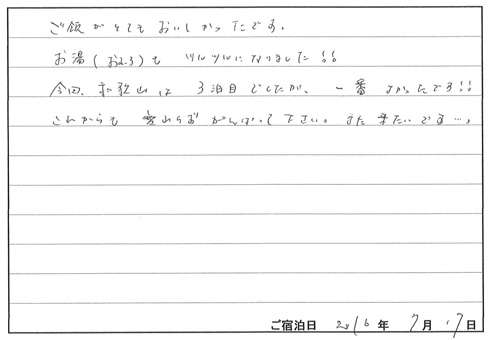 ご飯がとてもおいしかったです。
お湯(おふろ)も ツルツルになりました!!
今回、和歌山は 3泊目でしたが、一番 よかったです!!
これからも がんばって下さい。また来たいです…。
ご宿泊日 2016年 7月 17日